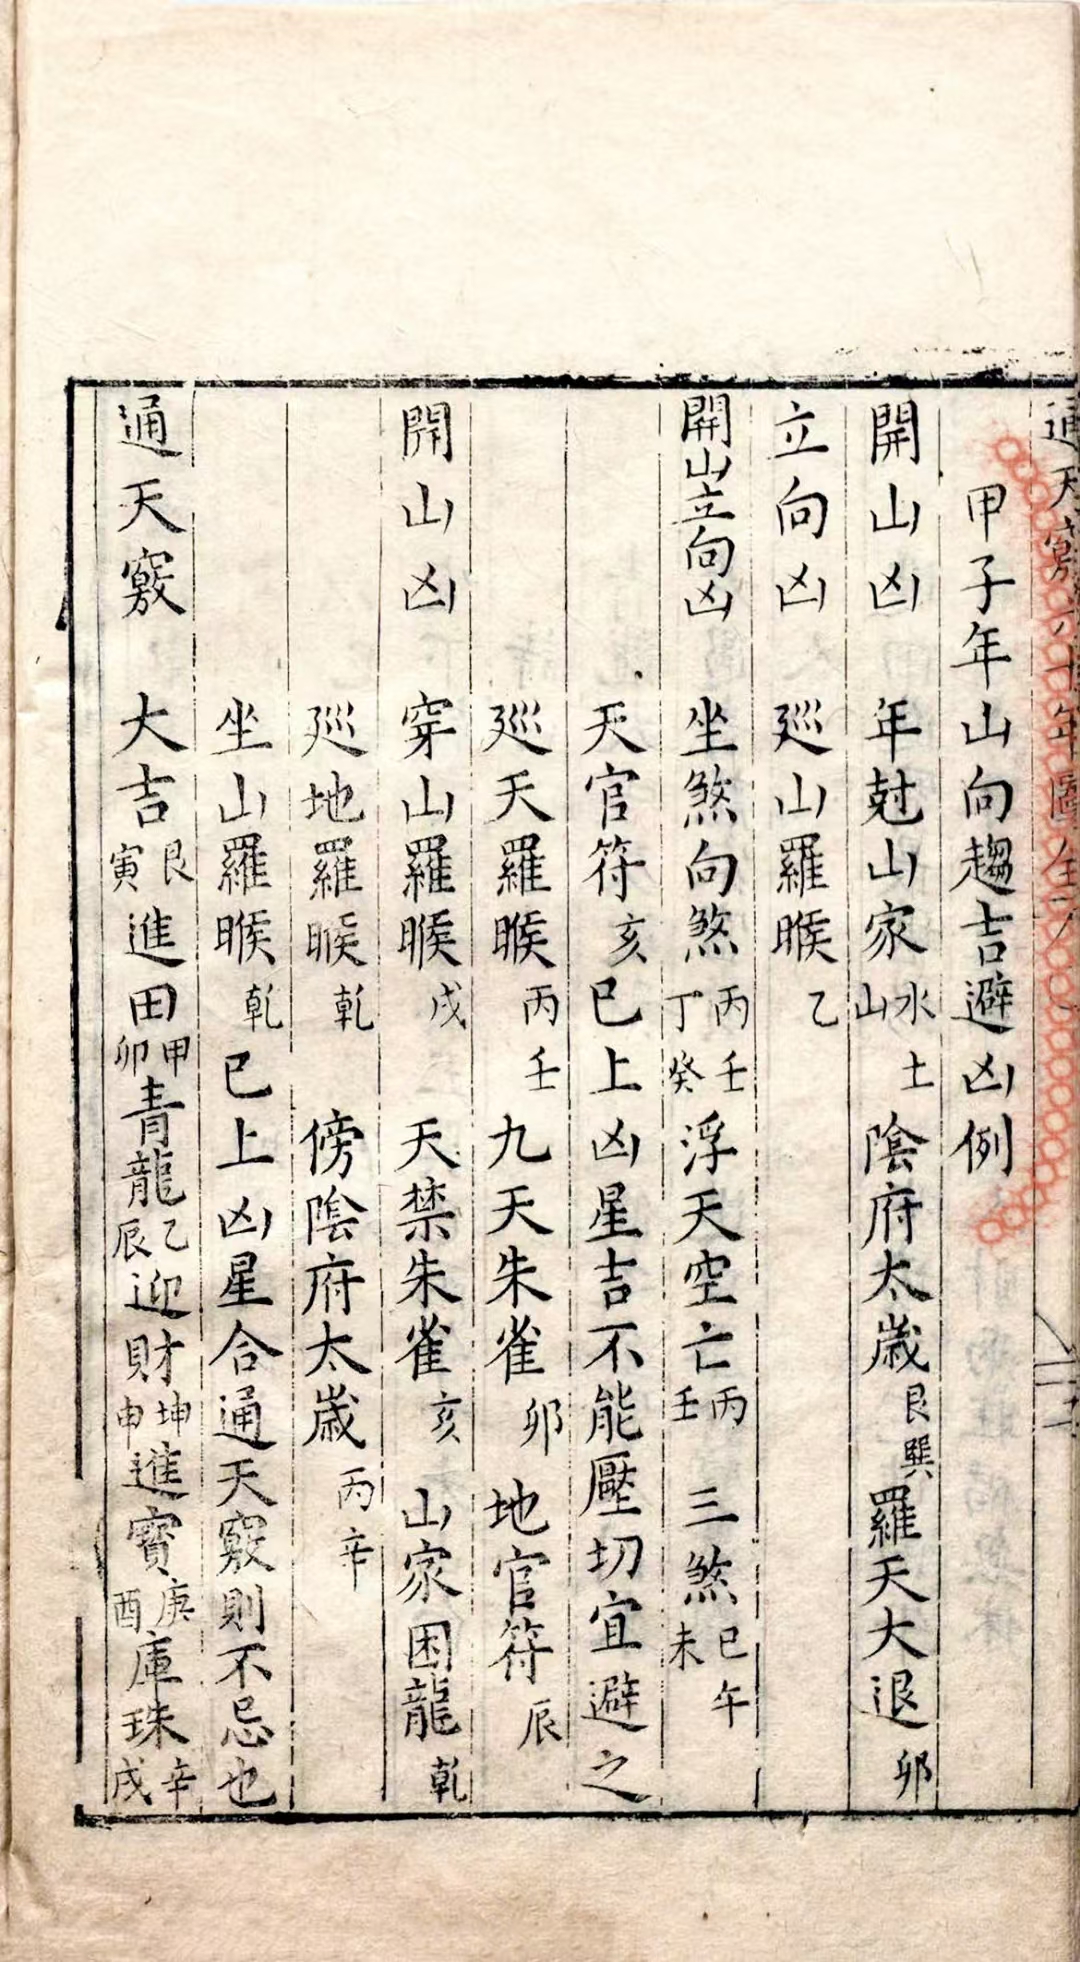 甲子年山向趨吉避凶例
開山凶 年尅山家水土山 陰府太歲艮巽 羅天大退卯
立向凶 廵山羅睺乙
開山立向凶 坐煞向煞丙壬丁癸 浮天空亡丙壬 三煞巳午未
天官符亥 已上凶星吉不能壓切宜避之
廵天羅睺丙壬 九天朱雀卯 地官符辰
開山凶 穿山羅睺戌 天禁朱雀亥 山家困龍乾
廵地羅睺乾 傍陰府太歲丙辛
坐山羅睺乾 已上凶星合通天竅則不忌也
通天竅 大吉艮寅 進田甲卯 青龍乙辰 迎財坤申 進寶庚酉 庫珠辛戌